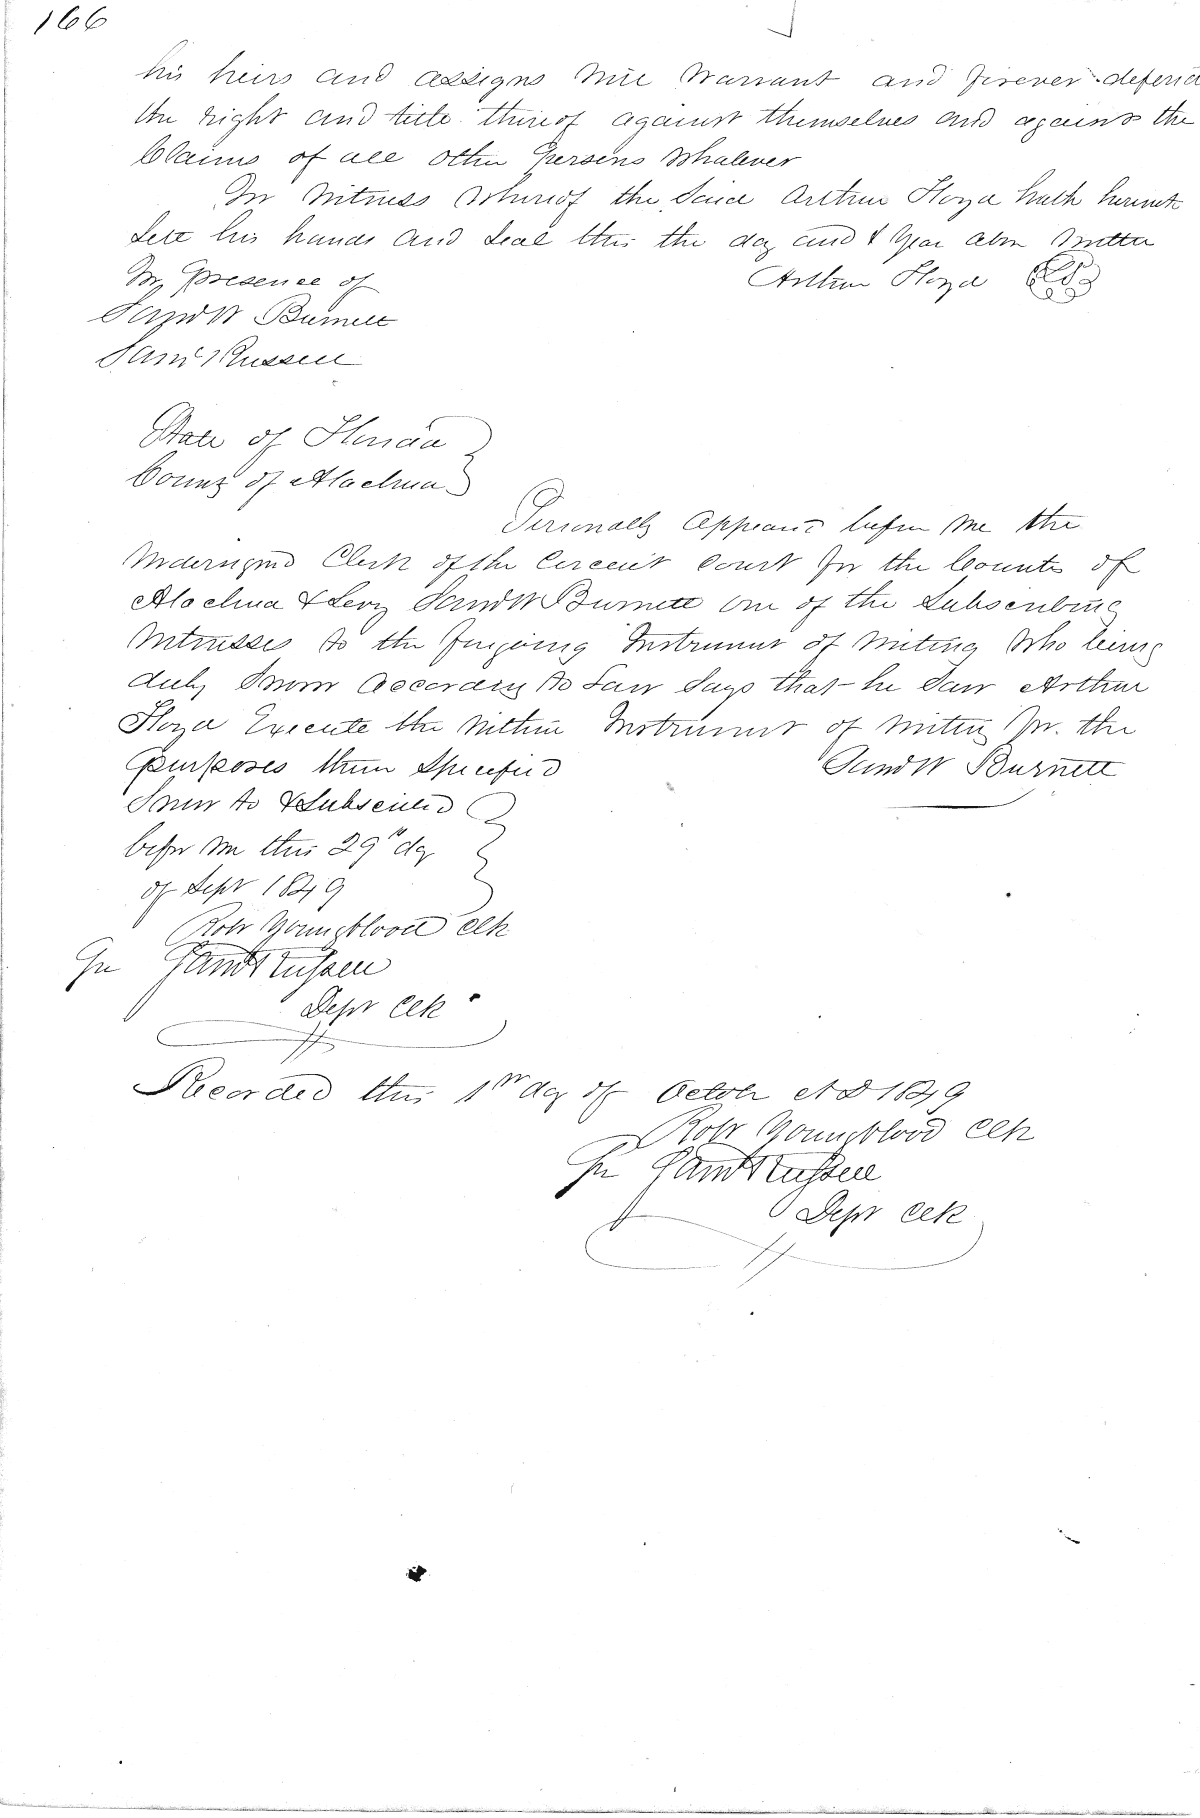 166
his heirs and assigns will warrant and forever defend
the right and title thereof against themselves and against the
Claims of all other persons whatever
In Witness Whereof the Said Arthur Floyd hath hereunto
Sett his hands and Seal this the day and & Year above Written
In presence of Arthur Floyd
Burnett
Saml Russell
State of Florida
County of Alachua
Personally Appeared before me the
Undersigned Clerk of the Circuit Court for the Counties of
Alachua & Levy Burnett one of the Subscribing
Witnesses to the foregoing Instrument of Writing Who being
duly Sworn According to Law Says that he Saw Arthur
Floyd Execute the Within Instrument of Writing for the
purposes therein Specified
Burnett
Sworn to & Subscribed
before me this 29th day
of Sept 1849
Robt Youngblood Clk
Saml Russell
Dept Clk
Recorded this 1st day of October AD 1849
Robt Youngblood Clk
Saml Russell
Dept Clk